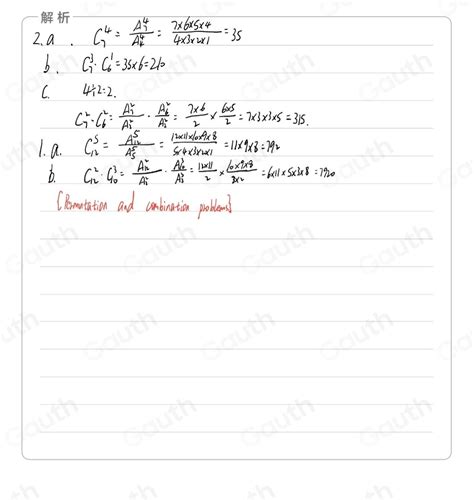 解析
2. a. C₇⁴ = A₇⁴/A₄⁴ = 7×6×5×4/4×3×2×1 = 35
b. C₇³·C₆¹ = 35×6=210
C. 4÷2=2.
C₇²·C₆² = A₇²/A₂² · A₆²/A₂² = 7×6/2 × 6×5/2 = 7×3×3×5 = 315.
1. a. C₁₂⁵ = A₁₂⁵/A₅⁵ = 12×11×10×9×8/5×4×3×2×1 = 11×9×8 = 792
b. C₁₂²·C₁₀³ = A₁₂²/A₂² · A₁₀³/A₃³ = 12×11/2 × 10×9×8/3×2 = 6×11×5×3×8 = 7920
[Permutation and combination problems]
Gauth